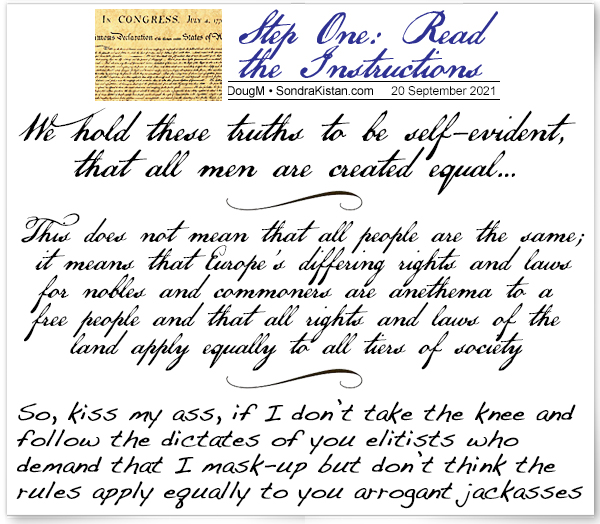 IN CONGRESS, JULY 4, 177
Step One: Read
the Instructions
DougM • SondraKistan.com 20 September 2021
We hold these truths to be self-evident,
that all men are created equal...
This does not mean that all people are the same;
it means that Europe's differing rights and laws
for nobles and commoners are anethema to a
free people and that all rights and laws of the
land apply equally to all tiers of society
So, kiss my ass, if I don't take the knee and
follow the dictates of you elitists who
demand that I mask-up but don't think the
rules apply equally to you arrogant jackasses